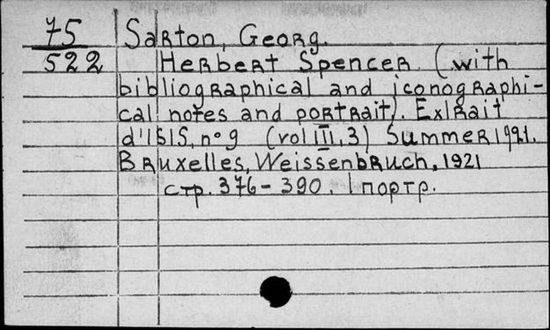 75 Sarton, Georg.
522 Herbert Spencer. (with
bibliographical and iconographi-
cal notes and portrait). Exlrait
d'ISIS, nº 9 (vol III, 3) Summer 1921.
Bruxelles, Weissenbruch, 1921
стр. 376-390. 1 портр.